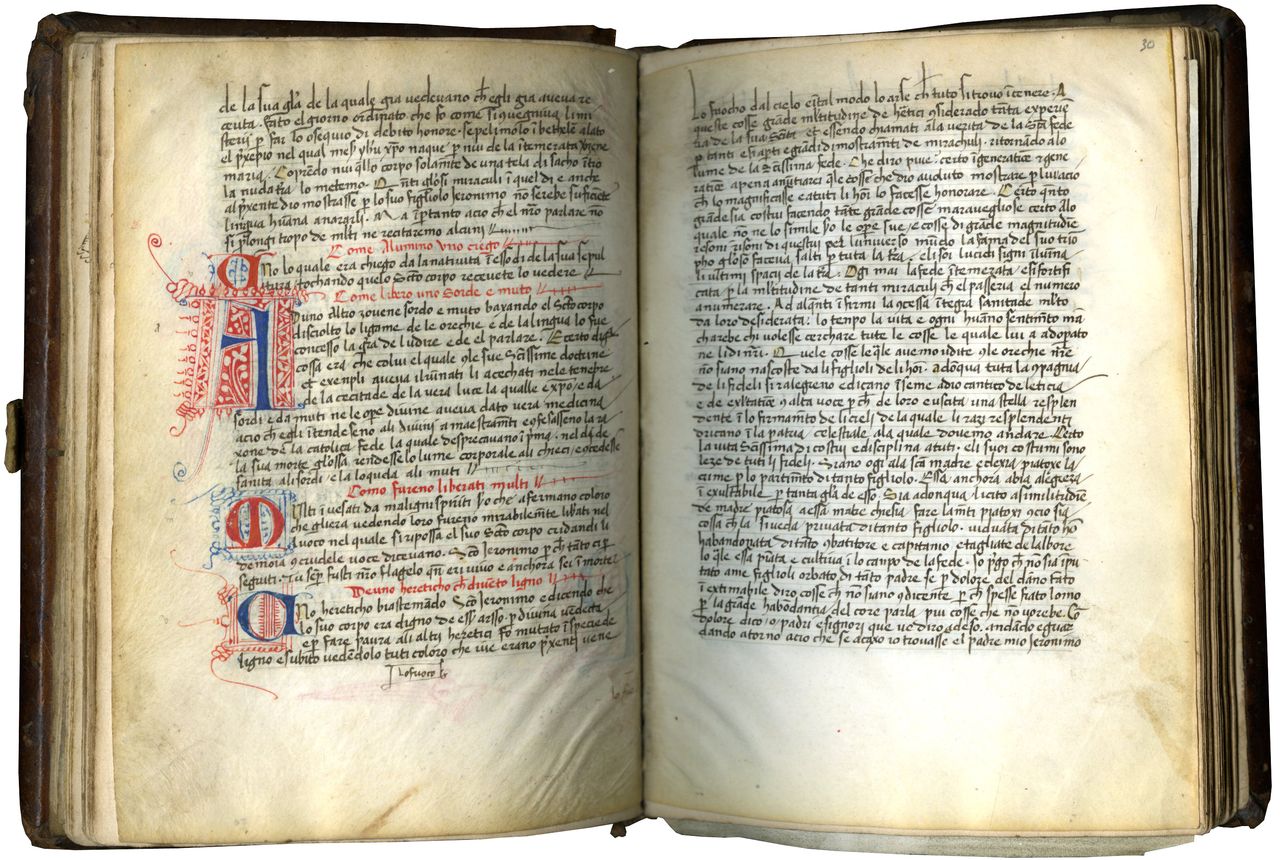 de la sua gl'a de la quale gia vedevano ch egli gia aveva re
ceuta. Fato el giorno ordinato che fo come si quegniva li mi
sterij p far lo osequio di debito honore. sepelimolo i bethele alato
el p'sepio nel qual mes' yhu xpo naque p nui de la itemerata v'gene
maria. Coprendo nui q'llo corpo solam'te de una tela di sacho it'o
la nuda t'ra lo metemo. Q'nti gl'osi miraculi i quel di e anche
al p'xente dio mostrasse p lo suo figliolo Jeronimo no serebe suficiete
lingua hu'ana anararli. Ma ip'tanto acio ch el nro parlare no
si p'longi tropo de m'lti ne recitaremo alcuni
Come Alumino uno ciego
Uno lo quale era chiego da la nativita i essodi de la sua sepul
tura tochando quelo Scto corpo recevete lo vedere
Come libero uno Sordo e muto
A uno Altro zovene sordo e muto baxando el Scto corpo
disciolto lo ligame de le orechie e de la lingua lo fue
concesso la gra de l udire e de el parlare. E certo dig'
cossa era che colui el quale q'le sue Sctissime doctrine
et exempli aveva ilu'nati li acechati ne le tenebre
de la cecitade de la vera luce la qualle expo e da
sordi e da muti ne le ope divine aveva dato vera medicina
acio ch egli i'tendeseno ali divini amaestram'ti e q'fesasseno la ra
xone de la catolica fede la quale desprecavano i p'ma. nel di de
la sua morte gl'ossa rendesse lo lume corporale ali ciechi e q'cedesse
sanita ali sordi e la loquela ali muti
Como fureno liberati multi
Molti i'vesati da maligni sp'riti p'o che afermano coloro
che gliera vedendo loro fureno mirabilem'te lib'ati nel
avoco nel quale si ripossa el suo Scto corpo cridando la
demoia q' crudele voce dicevano. Sco Jeronimo p ch tanto ci p
seguiti. Tu semp fusti nro flagelo q'n eri vivo e anchora sei i morte
De uno hereticho ch di've'to ligno
Uno hereticho biastema'do Sco Jeronimo e dicendo che
lo suo corpo era digno de ess' arsso. p divina vendeta
e p fare paura ali altri heretici fo mutato i specie de
ligno e subito vede'dolo tuti coloro che vie erano p'xenti vene
lo fuoco
30
Lo fuocho dal cielo e in tal modo lo arse ch tuto si trovo i cenere. A
queste cosse grande m'ltitudine de h'etici q'siderado ta'ta experie'
tia de la sua S'tita et essendo chiamati ala verita de la Scta fede
p tanti e si ap'ti e grandi dimostram'ti de mirachuli. ritornado alo
lume de la Sctissima fede. Che diro piue certo i generatione e gene
ratione apena anu'tiarei q'le cosse che dio a voluto mostrare p lui acio
ch lo magnificasse e a tuti li ho'i lo facesse honorare. Certo q'nto
grande sia costui facendo ta'te gra'de cosse maravegliose certo alo
quale no ne lo simile p'o le ope sue e cosse di grande magnitudie
p'ho gl'oso faceva salti p tuta la t'ra
li ultimi spacij de la t'ra. Ogi mai la fede i'temerata e si fortifi
cata p la m'ltitudine de tanti miraculi ch el passeria el numero
anumerare. Ad alqa'ti i'fermi la q'cessa i'tegra sanitade m'lto
da loro desiderata: lo tempo la vita e ogni hu'ano sentim'to ma'
charebe chi volesse cerchare tute le cosse le quale lui a adopato
ne li di n'ri. Quele cosse le q'le avemo udite q' le orechie n're
no siano nascoste da li figlioli de li ho'i. adoqua tuta la q'pagnia
de li fideli si ralegreno e dicano i'seme adio cantico de leticia
e de exultatione q' alta voce p ch de loro e uscita una stella resple'
de'te i lo firmam'to de li cieli de la quale li razi resplendenti
dricano i la patria celestiale ala quale dovemo andare. Certo
la vita Sctissima di costui e disciplina a tuti. eli suoi costumi sono
leze de tuti li fideli. S'rano ogi ala scta madre eclexia piatoxe la
crime p lo partim'to di tanto figliolo. Essa anchora abia alegreza
i exultabile p tanta gl'a de esso. Sia adonqua licito a similitudie
de madre piatosa a essa matre chiesia fare lam'ti piatoxi q' cio sia
cossa ch la si veda privata di tanto figliolo. viduata di tato ho'
habandonata di ta'to q'batitore e capitanio e tagliate de l albore
lo q'le essa pia'ta e cultiva i lo campo de la fede. Io p'go ch no sia i'pu
tato a me figlioli orbato di ta'to padre se p dolore del da'no fato
i extimabile diro cosse ch no siano q' dicente p ch spesse fiato l omo
p la gra'de habondantia del core parla piu cosse che no vorebe. Co
dolore dico o padri e signori que vo diro adeso. anda'do e guar
dando atorno acio che se a caxo io trovasse el padre mio Jeronimo